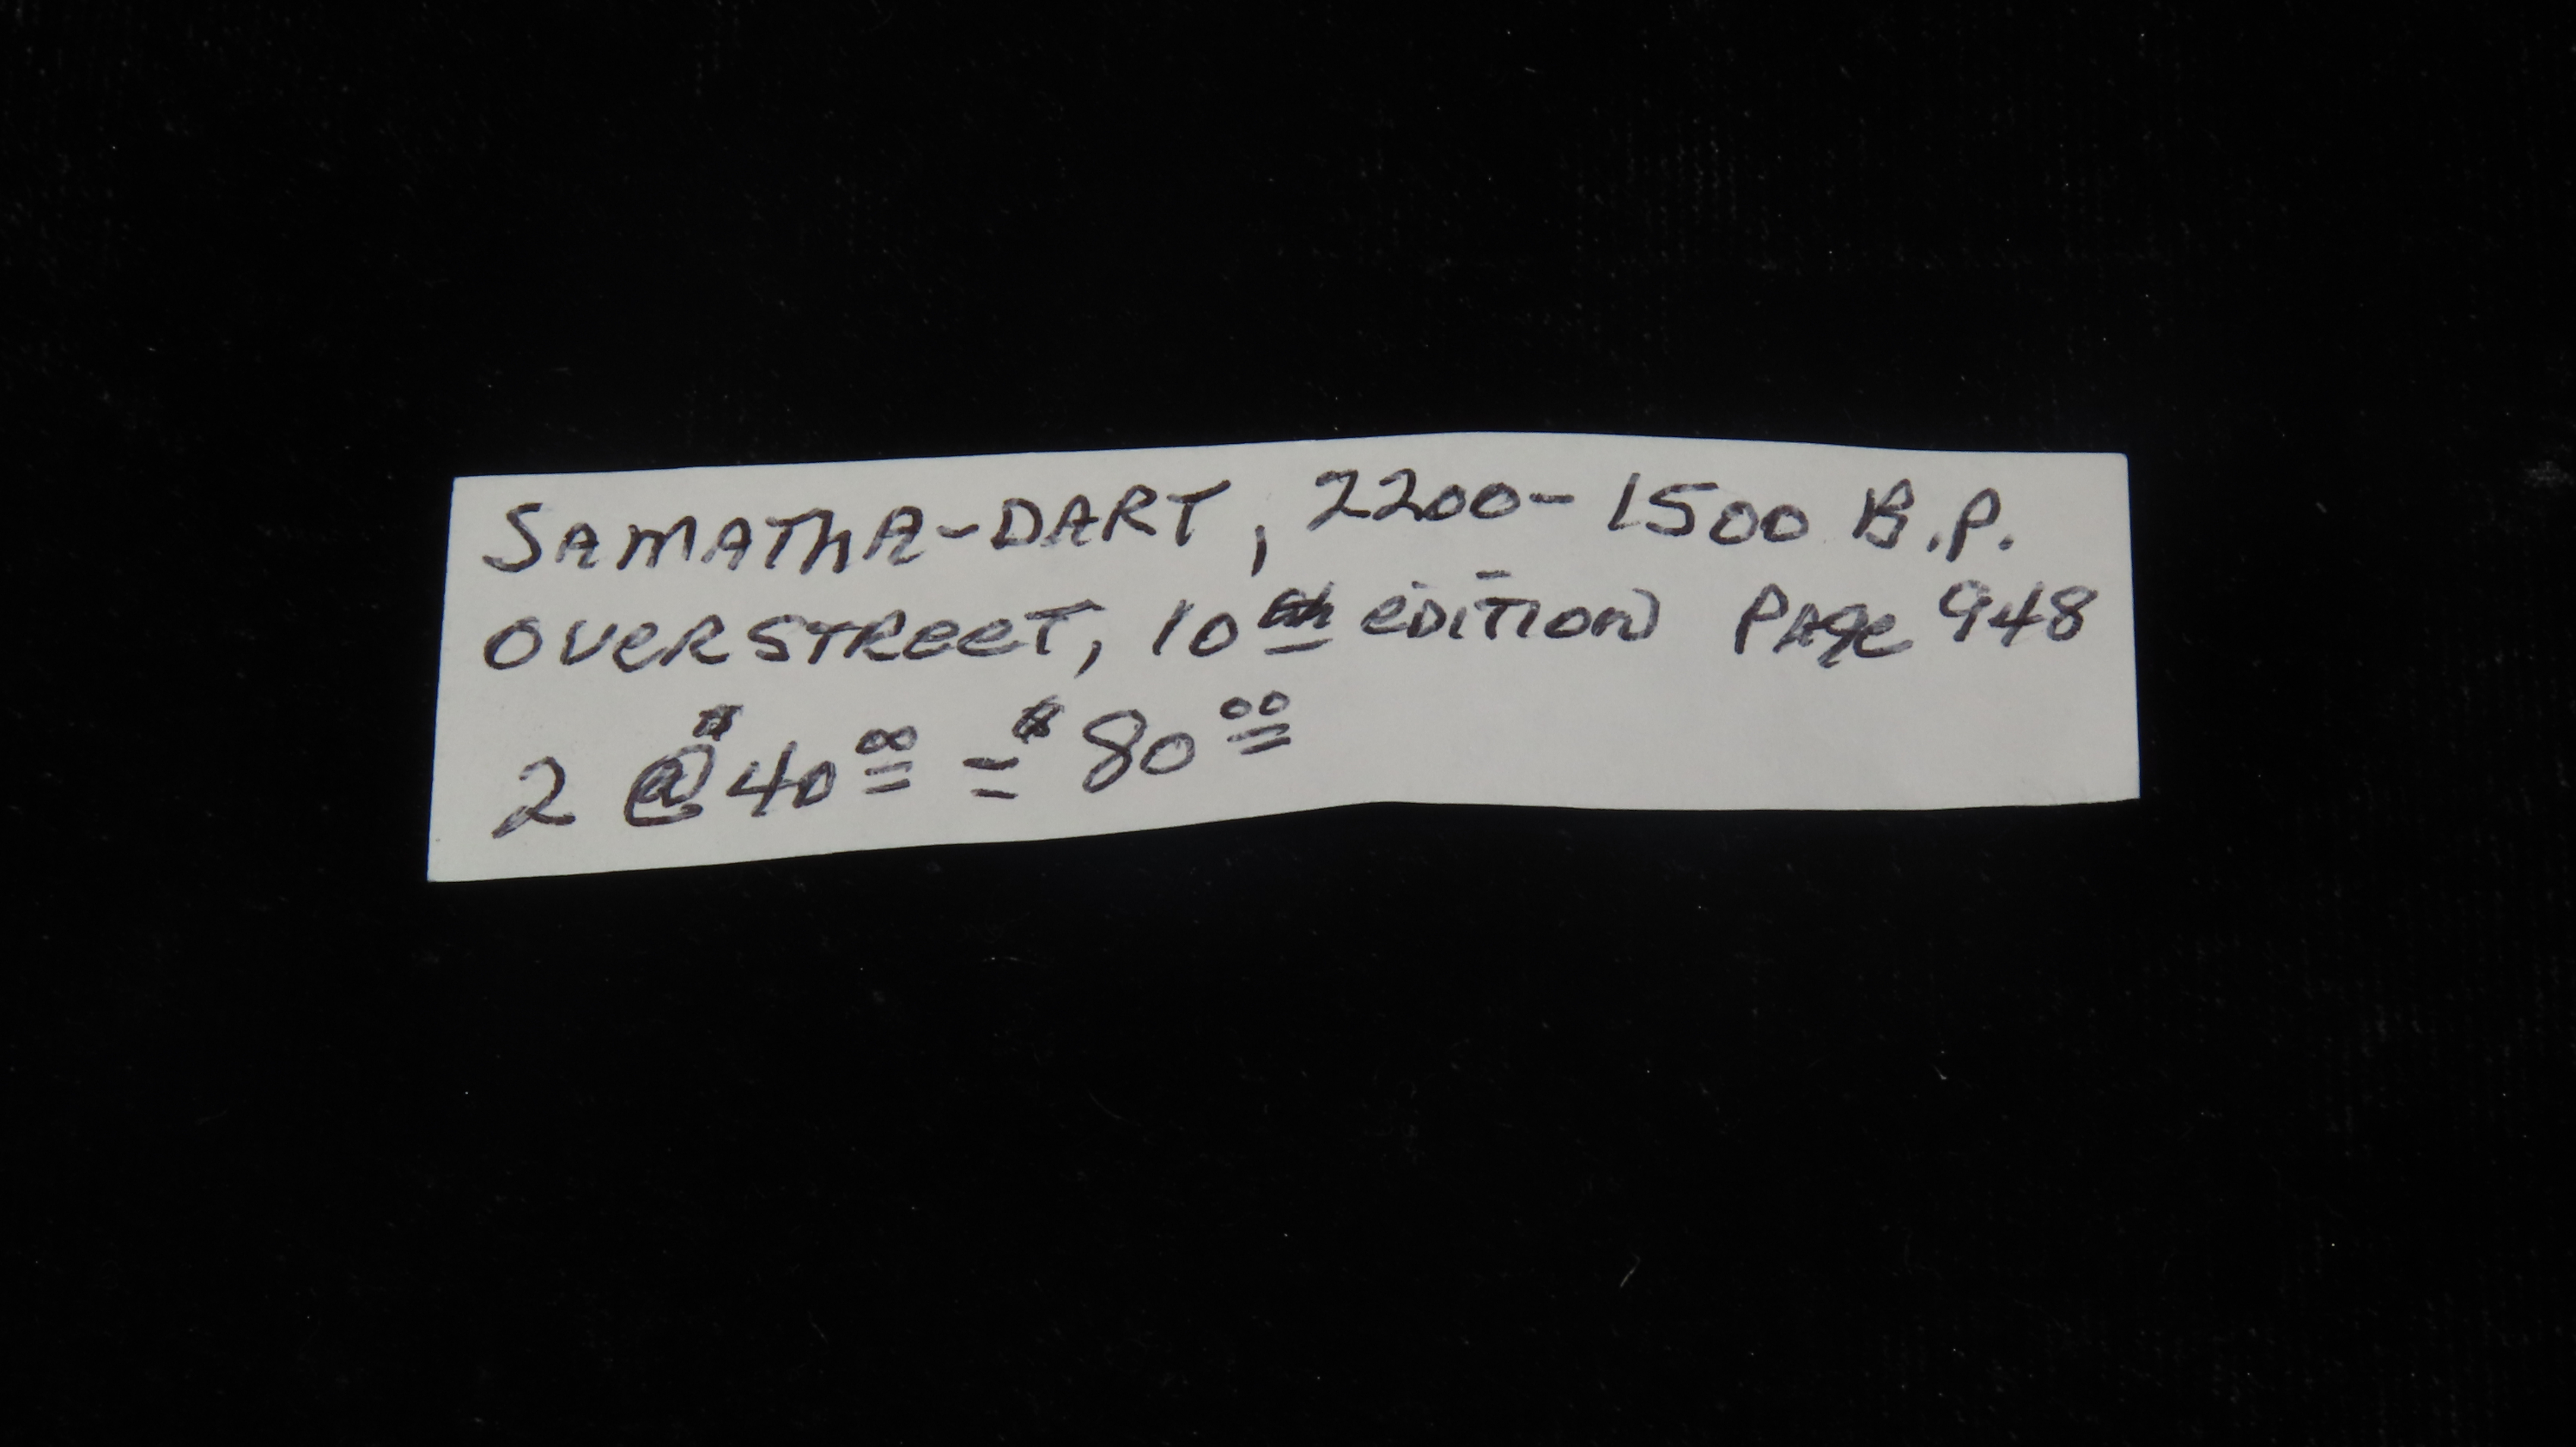 SAMATHA-DART, 2200-1500 B.P.
OVERSTREET, 10th EDITION PAGE 948
2 @ $40.00 = $80.00